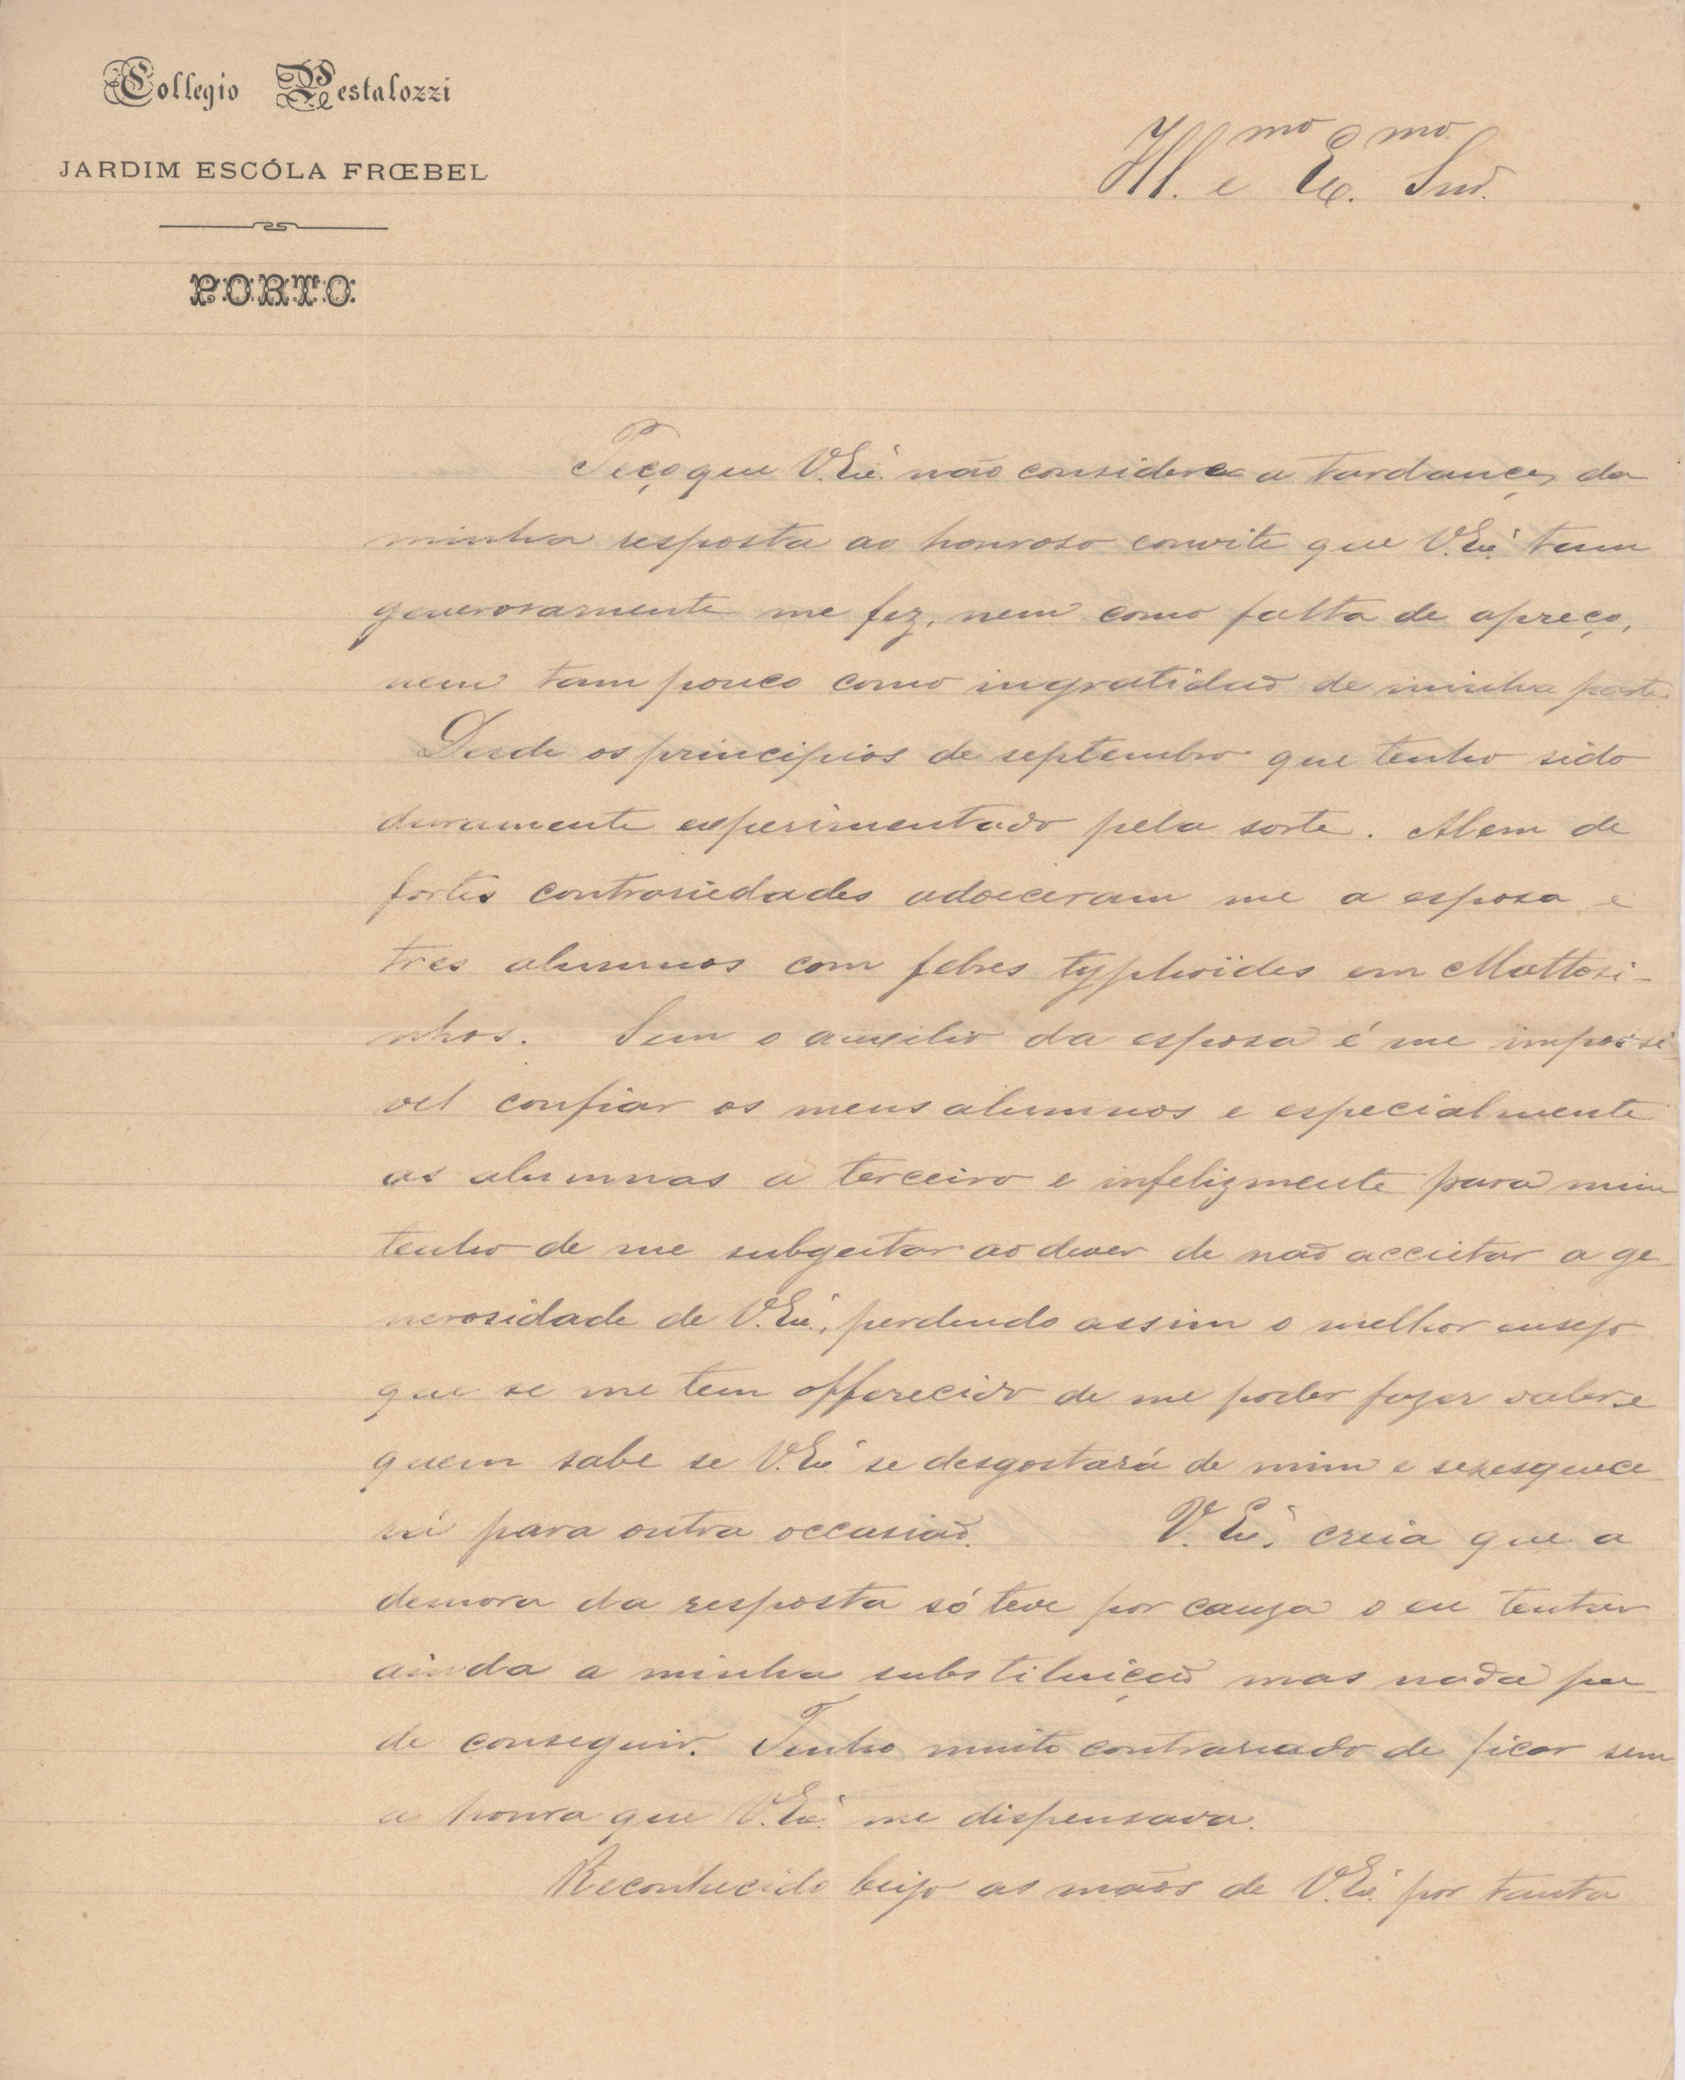 Collegio Pestalozzi
JARDIM ESCÓLA FRŒBEL
PORTO
Ill.mo e Ex.mo Snr.
Peço que V. Ex.ª não considere a tardança da
minha resposta ao honroso convite que V. Ex.ª tam
generosamente me fez, nem como falta de apreço,
nem tam pouco como ingratidão de minha parte.
Desde os principios de septembro que tenho sido
duramente experimentado pela sorte. Alem de
fortes contrariedades adoeceram me a esposa e
tres alumnos com febres typhoides em Mattosi-
nhos. Sem o auxilio da esposa é me impossi-
vel confiar os meus alumnos e especialmente
as alumnas a terceiro e infelizmente para mim
tenho de me subgeitar ao dever de não acceitar a ge-
nerosidade de V. Ex.ª, perdendo assim o melhor ensejo
que se me tem offerecido de me poder fazer valer e
quem sabe se V. Ex.ª se desgostará de mim e se esquece
rá para outra occasião. V. Ex.ª creia que a
demora da resposta só teve por causa o eu tentar
ainda a minha substituição mas nada pu-
de conseguir. Tenho muito contrariado de ficar sem
a honra que V. Ex.ª me dispensava.
Reconhecido beijo as mãos de V. Ex.ª por tanta